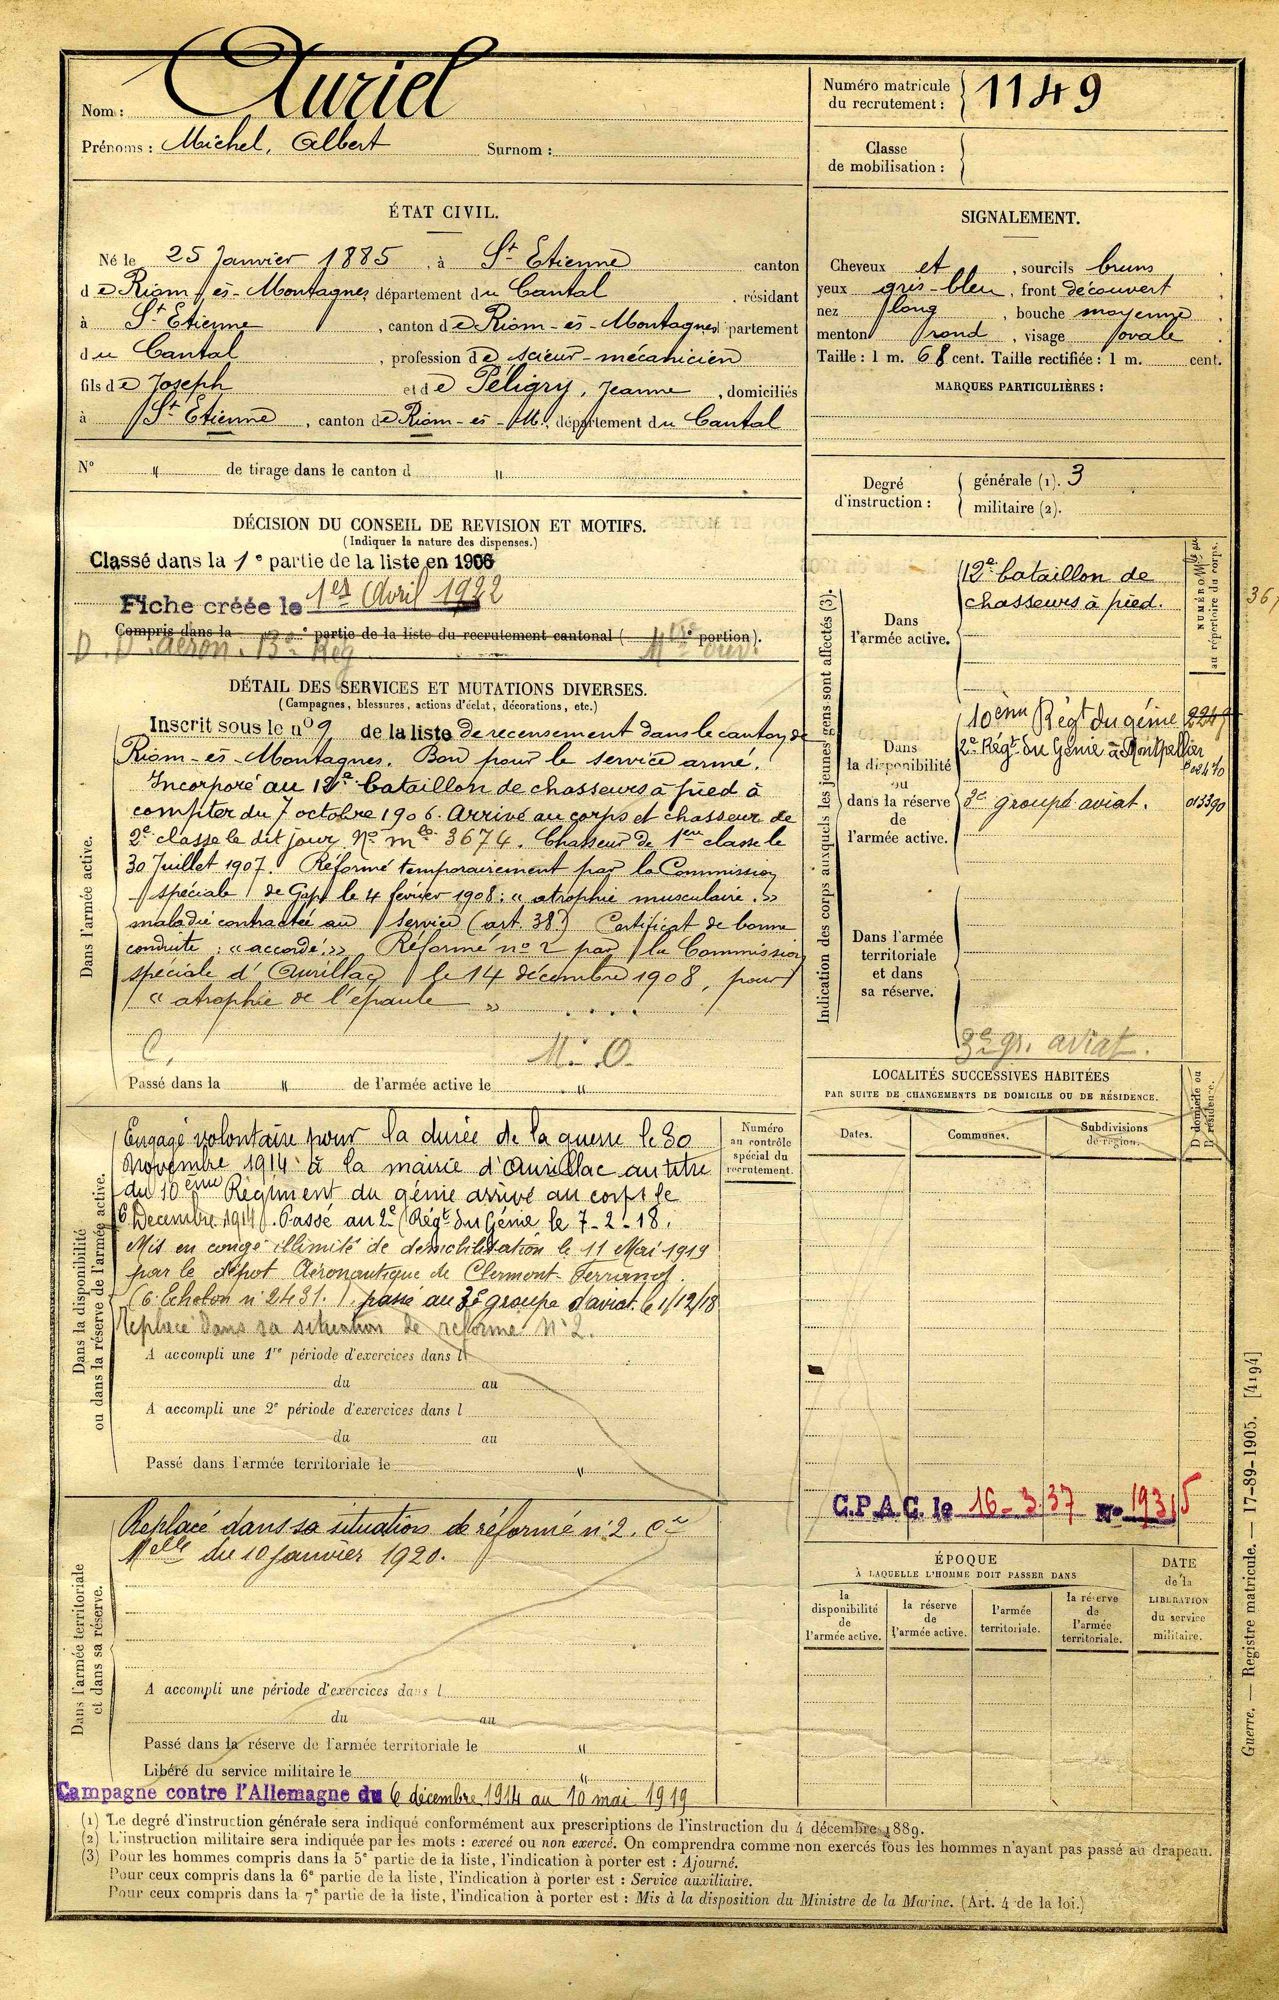 Nom : Auriel
Prénoms : Michel, Albert Surnom :
Numéro matricule
du recrutement : 1149
Classe
de mobilisation :
ÉTAT CIVIL.
Né le 25 Janvier 1885, à St Etienne canton
de Riom-ès-Montagnes département du Cantal, résidant
à St Etienne, canton de Riom-ès-Montagnes partement
du Cantal, profession de scieur-mécanicien
fils de Joseph et de Péligry, Jeanne, domiciliés
à St Etienne, canton de Riom-ès-M., département du Cantal
N° " de tirage dans le canton d "
SIGNALEMENT.
Cheveux et, sourcils bruns,
yeux gris-bleu, front découvert,
nez long, bouche moyenne,
menton rond, visage ovale.
Taille : 1 m. 68 cent. Taille rectifiée : 1 m. cent.
MARQUES PARTICULIÈRES :
Degré
d'instruction :
générale (1). 3
militaire (2).
DÉCISION DU CONSEIL DE REVISION ET MOTIFS.
(Indiquer la nature des dispenses.)
Classé dans la 1e partie de la liste en 1906
Fiche créée le 1er Avril 1922
Compris dans la e partie de la liste du recrutement cantonal ( portion).
D. Dt aéron. 13e Rég
DÉTAIL DES SERVICES ET MUTATIONS DIVERSES.
(Campagnes, blessures, actions d'éclat, décorations, etc.)
Dans l'armée active.
Inscrit sous le n° 9 de la liste de recensement dans le canton de
Riom-ès-Montagnes. Bon pour le service armé.
Incorporé au 12e bataillon de chasseurs à pied à
compter du 7 octobre 1906. Arrivé au corps et chasseur de
2e classe le dit jour. No mle 3674. Chasseur de 1ère classe le
30 Juillet 1907. Réformé temporairement par la Commission
spéciale de Gap le 4 février 1908 : « atrophie musculaire. »
maladie contractée au service (art. 38) Certificat de bonne
conduite : « accordé. » Réformé n° 2 par la Commission
spéciale d'Aurillac, le 14 décembre 1908, pour
« atrophie de l'épaule »
C. M. O.
Passé dans la " de l'armée active le "
Indication des corps auxquels les jeunes gens sont affectés (3).
NUMÉRO Mle ou
au répertoire du corps.
Dans
l'armée active.
12e bataillon de
chasseurs à pied.
367
Dans
la disponibilité
ou
dans la réserve
de
l'armée active.
10ème Régt du génie 2249
2e Régt du Génie à Montpellier
3e groupe aviat. 013390
Dans l'armée
territoriale
et dans
sa réserve.
3e gr. aviat.
LOCALITÉS SUCCESSIVES HABITÉES
PAR SUITE DE CHANGEMENTS DE DOMICILE OU DE RÉSIDENCE.
Dates. Communes. Subdivisions
de région.
D domicile ou
R résidence.
Dans la disponibilité
ou dans la réserve de l'armée active.
Numéro
au contrôle
spécial du
recrutement.
Engagé volontaire pour la durée de la guerre le 30
Novembre 1914 à la mairie d'Aurillac au titre
du 10ème Régiment du génie arrivé au corps le
6 Décembre 1914. Passé au 2e Régt du Génie le 7-2-18.
Mis en congé illimité de démobilisation le 11 Mai 1919
par le dépot Aéronautique de Clermont-Ferrand.
(6e Echelon n° 2431.) passé au 3e groupe d'aviat. le 1/12/18
Replacé dans sa situation de réformé N° 2.
A accompli une 1re période d'exercices dans l
du au
A accompli une 2e période d'exercices dans l
du au
Passé dans l'armée territoriale le "
C.P.A.C. le 16-3.37 No 19315
Dans l'armée territoriale
et dans sa réserve.
Replacé dans sa situation de réformé n° 2. Cre
Melle du 10 janvier 1920.
A accompli une période d'exercices dans l
du au
Passé dans la réserve de l'armée territoriale le "
Libéré du service militaire le "
Campagne contre l'Allemagne du 6 décembre 1914 au 10 mai 1919
ÉPOQUE
À LAQUELLE L'HOMME DOIT PASSER DANS
la
disponibilité
de
l'armée active.
la réserve
de
l'armée active.
l'armée
territoriale.
la réserve
de
l'armée
territoriale.
DATE
de la
LIBÉRATION
du service
militaire.
(1) Le degré d'instruction générale sera indiqué conformément aux prescriptions de l'instruction du 4 décembre 1889.
(2) L'instruction militaire sera indiquée par les mots : exercé ou non exercé. On comprendra comme non exercés tous les hommes n'ayant pas passé au drapeau.
(3) Pour les hommes compris dans la 5e partie de la liste, l'indication à porter est : Ajourné.
Pour ceux compris dans la 6e partie de la liste, l'indication à porter est : Service auxiliaire.
Pour ceux compris dans la 7e partie de la liste, l'indication à porter est : Mis à la disposition du Ministre de la Marine. (Art. 4 de la loi.)
Guerre. — Registre matricule. — 17-89-1905. [4194]